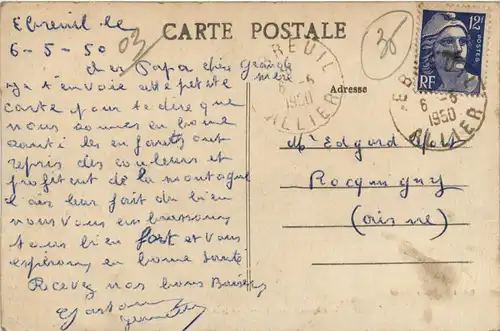 CARTE POSTALE
Ebreuil le
6-5-50
03
30
cher Papa chère Grande
mère
Je t'envoie cette petite
carte pour te dire que
nous sommes en bonne
santé les enfants ont
repris des couleurs et
profitent de la montagne
l'air leur fait du bien
nous vous embrassons
tous bien fort et vous
espérons en bonne santé
Recevez nos bons Baisers
Gaston
Jeannette
Adresse
Mr Edgard
Rocquigny
(Aisne)
EBREUIL
6-6
1950
ALLIER
12F
POSTES
RF
EB
6-6
1950
ALLIER